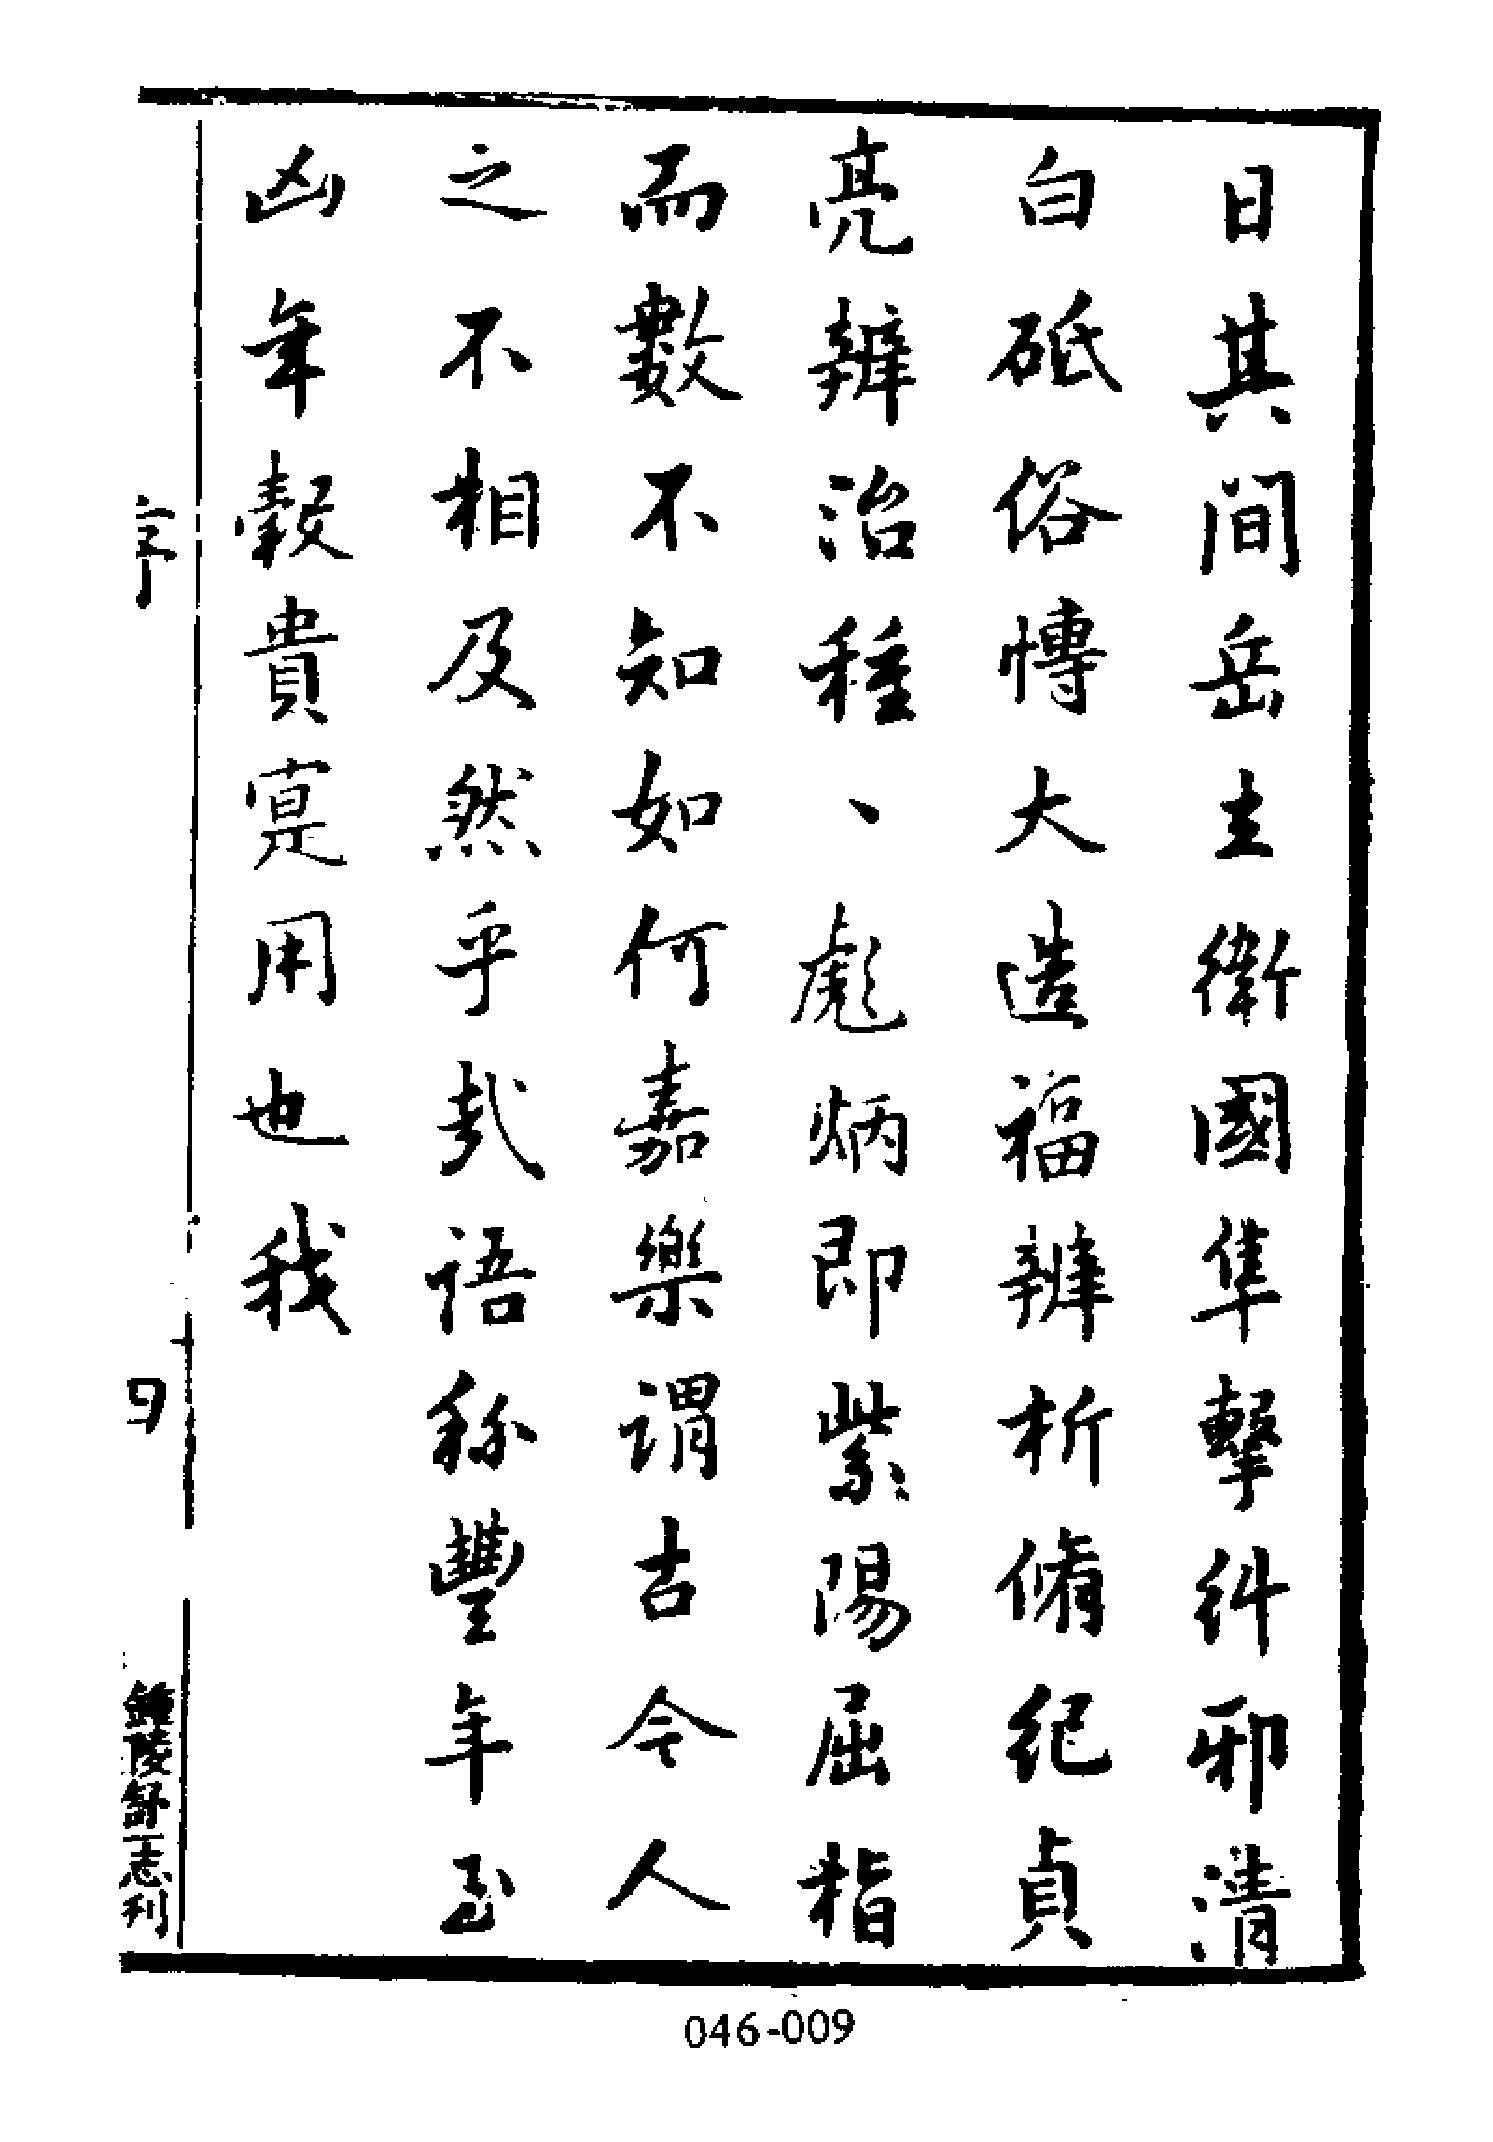 日其間岳主衛國隼擊糾邪清
白砥俗慱大造福辦析脩紀貞
亮辦治種、彪炳即紫陽屈指
而數不知如何嘉樂謂古今人
之不相及然乎哉語称豐年玉
凶年穀貴寔用也我
序
四
鍾陵舒一志刊
046-009